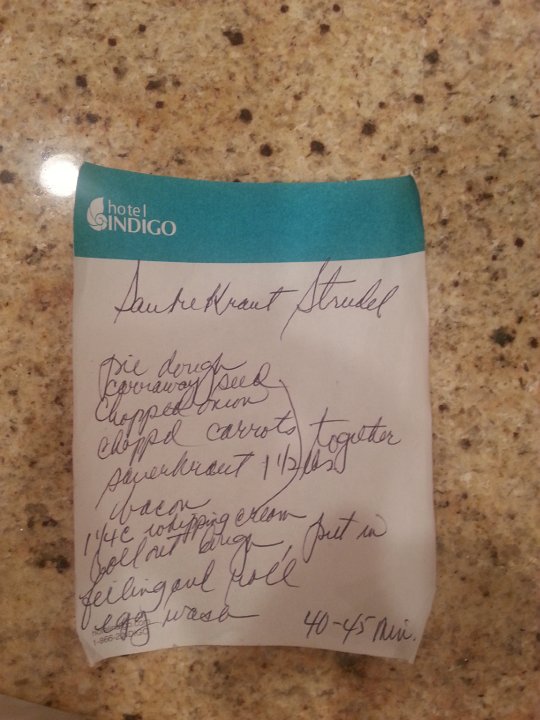 hotel
INDIGO
Sautre Kraut Strudel
pie dough
carraway seed
chopped onion
choppd carrots together
sauerkraut 1 1/2 lbs
bacon
1 1/4 c whipping cream
roll out dough, put in
feiling and roll
egg wash
40-45 Min.